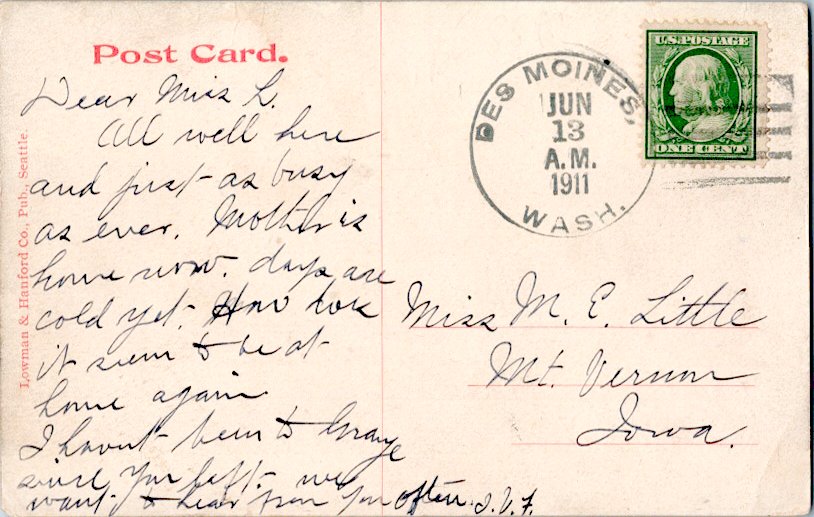 Post Card.
Lowman & Hanford Co., Pub., Seattle.
Dear Miss L.
All well here
and just as busy
as ever. Mother is
home now. days are
cold yet. How does
it seem to be at
home again
I havent been to Grange
since you left. we
want to hear from you often. I. V. F.
DES MOINES,
JUN
13
A.M.
1911
WASH.
U.S. POSTAGE
ONE CENT
Miss M. E. Little
Mt. Vernon
Iowa.